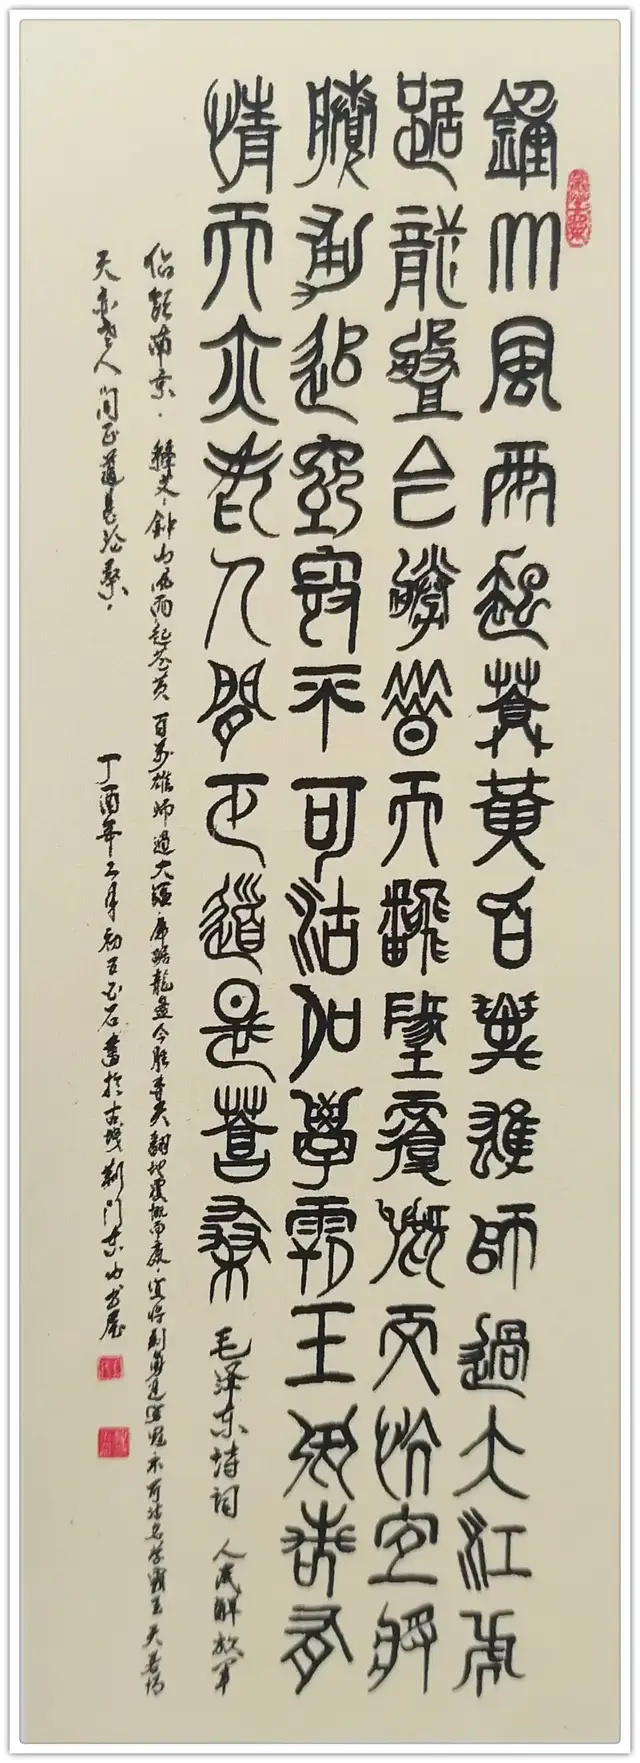 鍾山風雨起蒼黃百萬雄師過大江虎
踞龍盤今勝昔天翻墬覆慨而忼宜將
賸勇追窮寇不可沽名學霸王天若有
情天亦老人間正道是蒼桑 毛泽东诗词 人民解放军
佔领南京. 释文: 钟山风雨起苍黄 百万雄师过大江 虎踞龍盘今胜昔天翻地覆慨而慷. 宜将剩勇追穷寇不可沽名学霸王天若有情
天亦老人间正道是沧桑. 丁酉年二月初五玉石書於古城荆门东山书屋